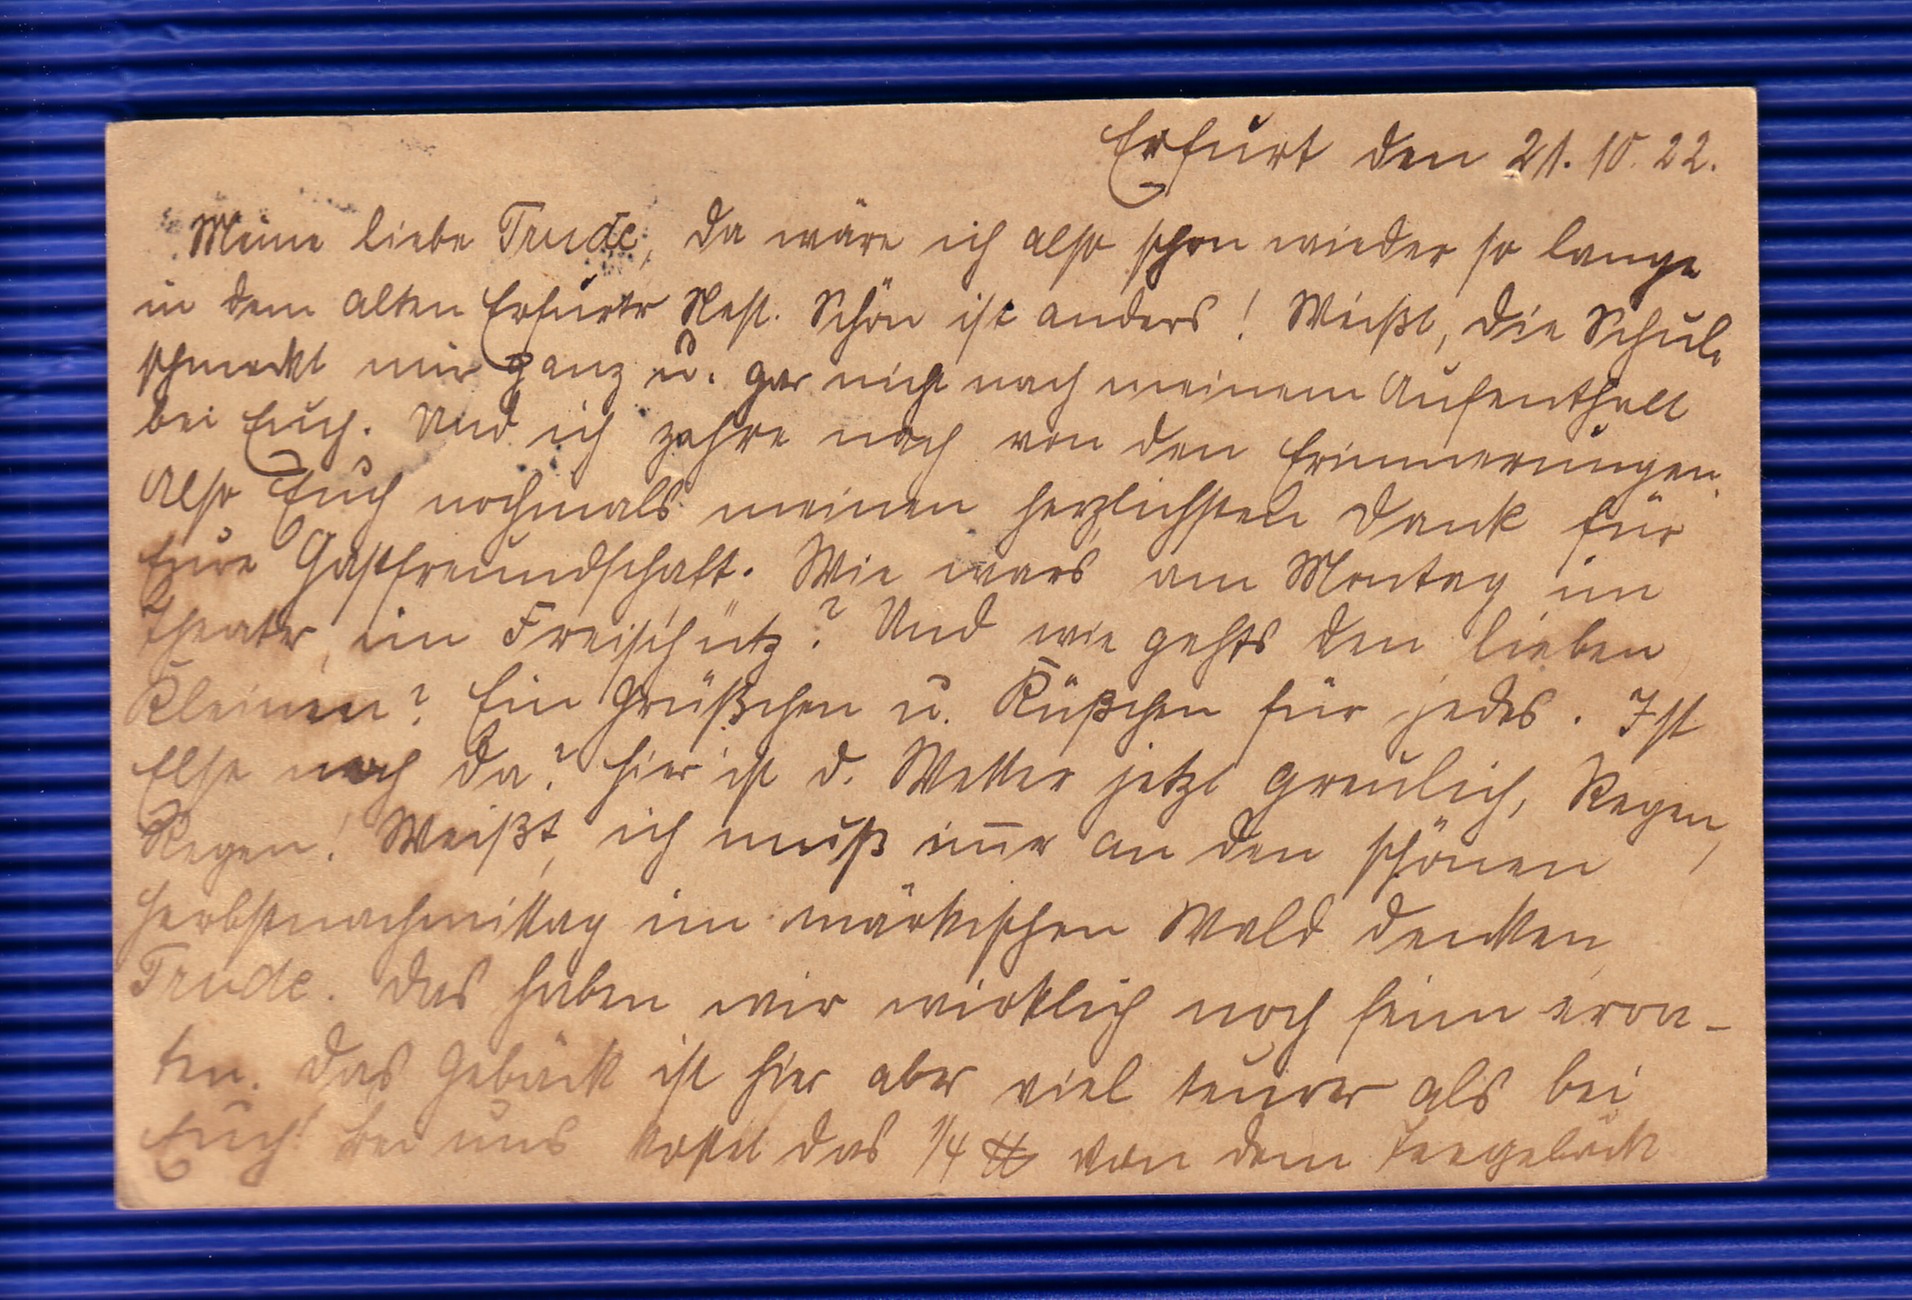 Erfurt den 21.10.22.
Meine liebe Trude, da wäre ich also schon wieder so lange
in dem alten Erfurter Nest. Schön ist anders! Weißt, die Schule
schmeckt mir ganz u. gar nicht nach meinem Aufenthalt
bei Euch. Und ich zehre noch von den Erinnerungen.
Also Euch nochmals meinen herzlichsten Dank für
Eure Gastfreundschaft. Wie wars am Montag im
Theater, im Freischütz? Und wie gehts den lieben
Kleinen? Ein Grüßchen u. Küßchen für jedes. Ist
Else noch da? Hier ist d. Wetter jetzt greulich, Regen,
Regen! Weißt, ich muß im̅er an den schönen
Herbstnachmittag im märkischen Wald denken,
Trude. Das haben wir wirklich noch fein
ten. Das Gebäck ist hier aber viel teurer als bei
Euch! Bei uns kostet das 1/4 ℔ von dem Teegebäck